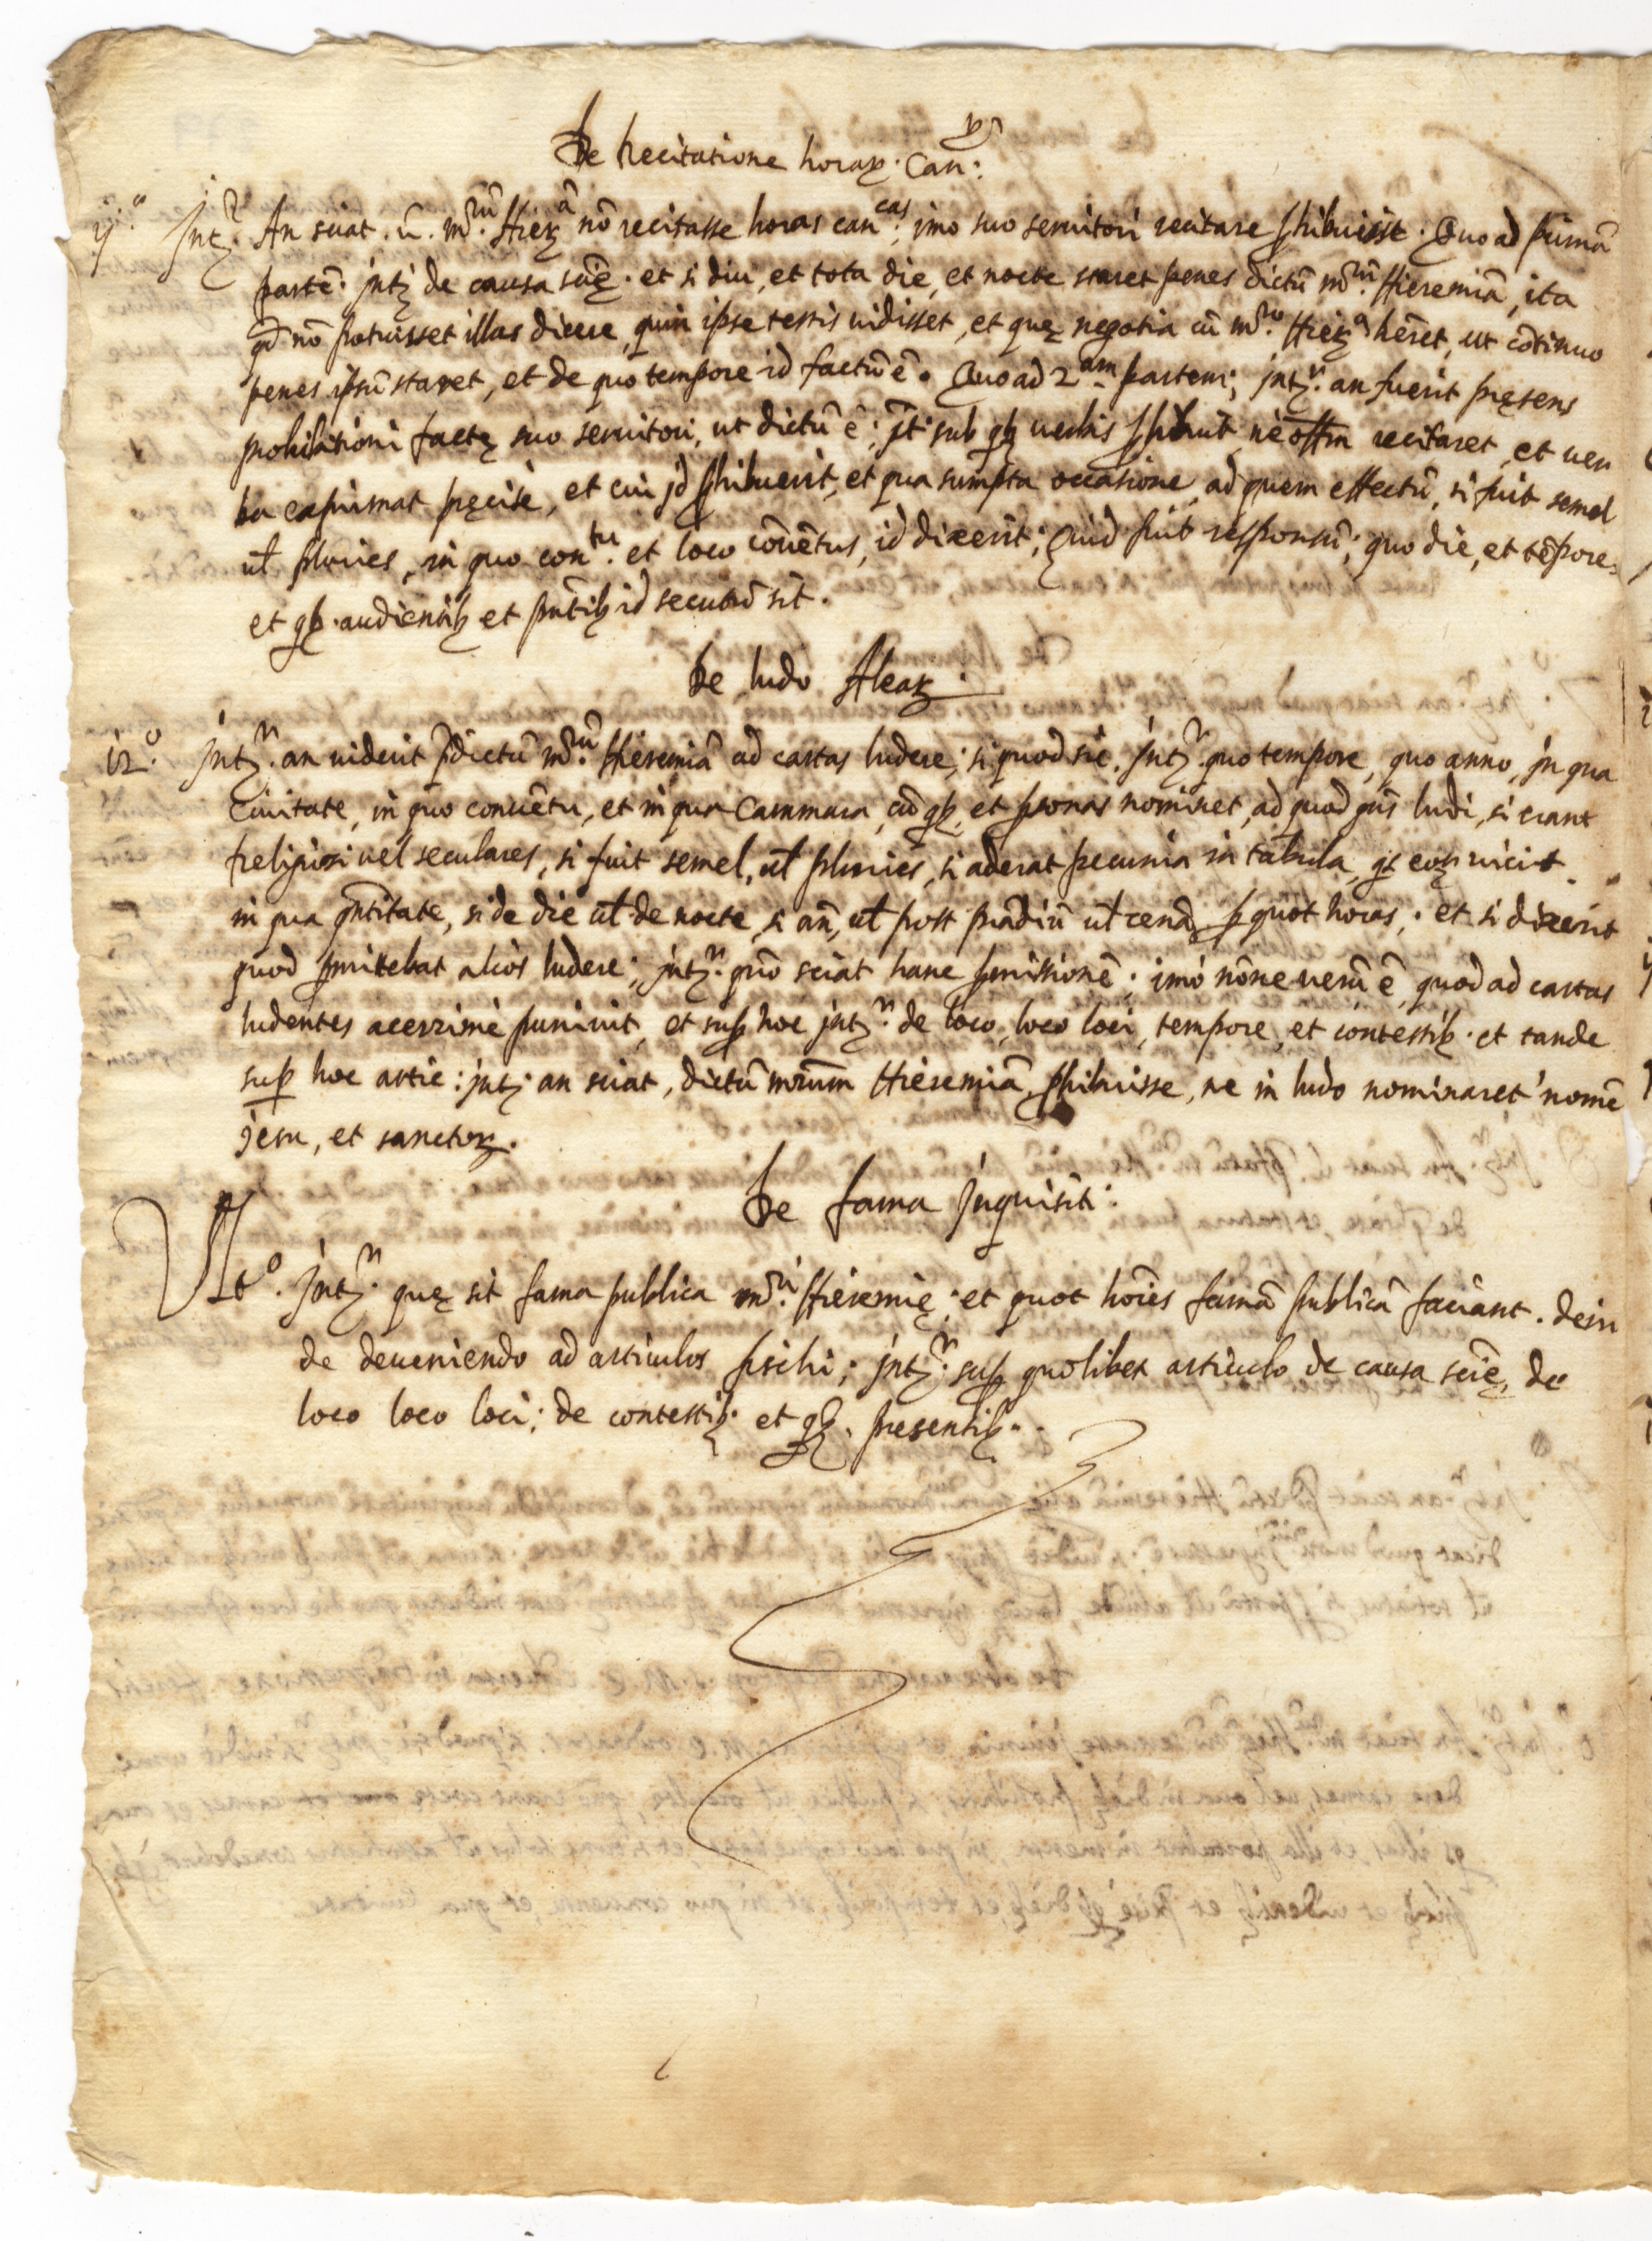 De Recitatione horaꝝ. Can:
ij.° Intr. An sciat. ū. mrū. Hierā nō recitasse horas cancas; imo suo seruitori recitare ꝓhibuisse. Quo ad primā
partē. intr de causa sciē. et si diu, et tota die, et nocte staret penes dictū mrū. Hieremiā, ita
qd nō potuisset illas dicere, quin ipse testis uidisset, et quę negotia cū mro. Hiera hēret, ut cōtinuo
penes ipsū staret, et de quo tempore id factū ē. Quo ad 2am partem; intr. an fuerit pręsens
prohibitioni factę suo seruitori, ut dictū ē; it. sub qb uerbis ꝓhibuit, ne offm recitaret, et uer
ba exprimat pręcise, et cui id ꝓhibuerit, et qua sumpta occasione, ad quem effectū, si fuit semel
ut pluries, in quo contu. et loco cōuētus, id dixerit; Quid fuit responsū; quo die, et tēpore,
et qb. audientib et pntib id secutū sit.
De ludo Aleaꝝ.
12.° Intr. an uiderit pdictū mrū. Hieremiā ad cartas ludere; si quod sic. Intr. quo tempore, quo anno, in qua
Ciuitate, in quo conuētu, et in qua Cammara, cū qb, et ꝑsonas nominet, ad quod gūs ludi, si erant
religiosi uel seculares, si fuit semel, ut pluries, si aderat pecunia in tabula, qs eoꝝ uicit
in qua qntitate, si de die ut de nocte, si an, ut post prādiū ut cenā, ꝑ quot horas; et si dixerit
quod ꝑmitebat alios ludere; intr. quō sciat hanc ꝑmissionē; imo nōne uerū ē, quod ad cartas
ludentes acerrimè puniuit, et suꝑ hoc intr. de loco, loco loci, tempore, et contestib. et tande
suꝑ hoc artic: intr. an sciat, dictū mrum Hieremiā, ꝓhibuisse, ne in ludo nominaret nomē
Jesu, et sanctoꝝ.
De fama Inquisiti:
Ult°. Intr. quę sit fama publica mri. Hieremię; et quot hoīes famā publicā faciant. dein
de deueniendo ad articulos fischi; intr. suꝑ quolibet articulo de causa sciē, de
loco loco loci; de contestib. et qb. presentib.